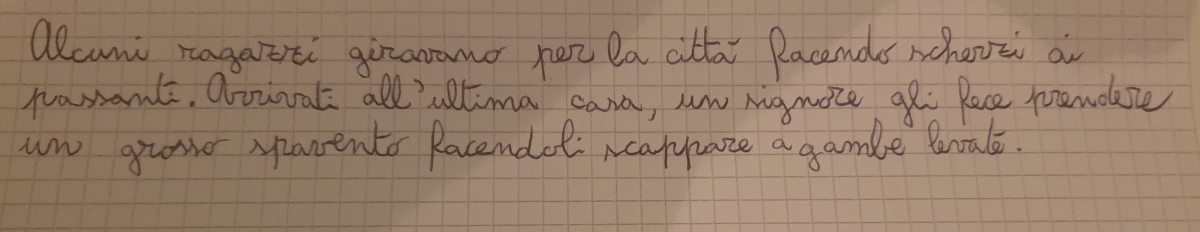 Alcuni ragazzi giravano per la città facendo scherzi ai
passanti. Arrivati all'ultima casa, un signore gli fece prendere
un grosso spavento facendoli scappare a gambe levate.